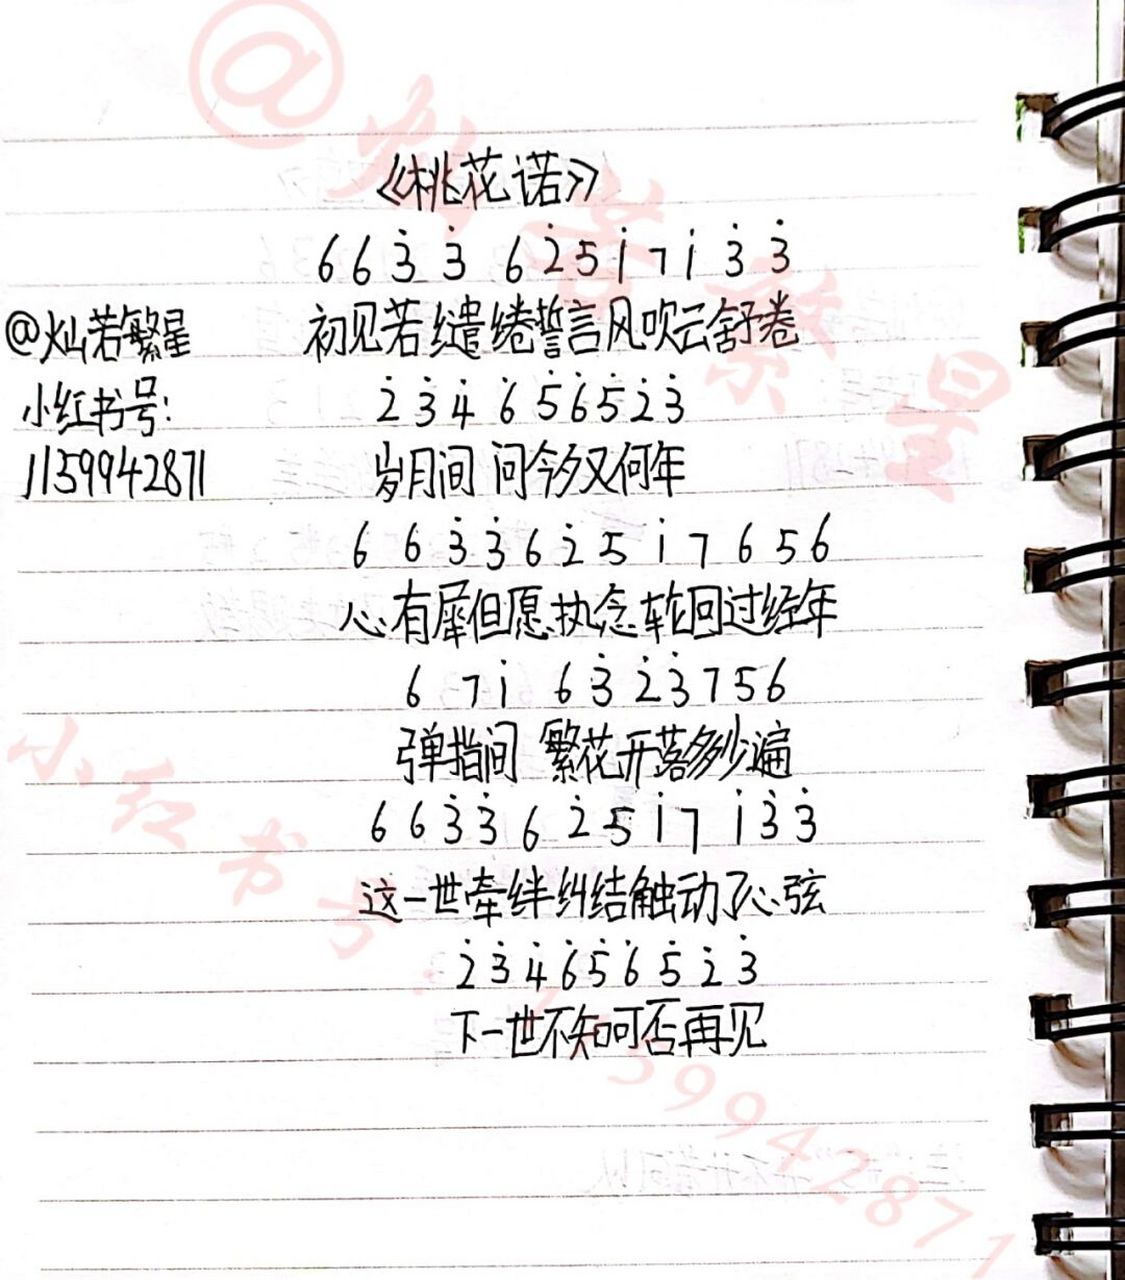 《桃花诺》
6 6 3̇ 3̇ 6 2̇ 5 1̇ 7 1̇ 3̇ 3̇
初见若缱绻誓言风吹云舒卷
@灿若繁星
小红书号:
11159942871
2̇ 3̇ 4̇ 6̇ 5̇ 6̇ 5̇ 2̇ 3̇
岁月间 问今夕又何年
6 6 3̇ 3̇ 6 2̇ 5 1̇ 7 6 5 6
心有犀但愿执念轮回过经年
6 7 1̇ 6 3̇ 2̇ 3̇ 7 5 6
弹指间 繁花开落多少遍
6 6 3̇ 3̇ 6 2̇ 5 1̇ 7 1̇ 3̇ 3̇
这一世牵绊纠结触动了心弦
2̇ 3̇ 4̇ 6̇ 5̇ 6̇ 5̇ 2̇ 3̇
下一世不知可否再见
@灿若繁星
小红书号: